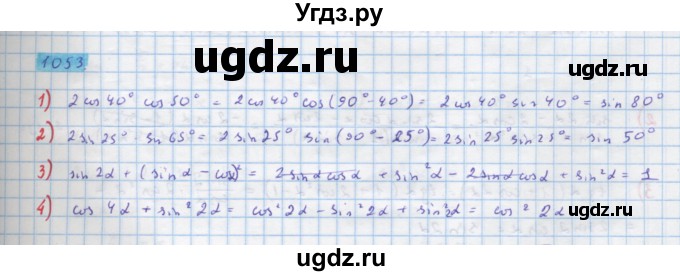 Угдз.ру
ugdz.ru
ugdz.ru
1053.
1) 2 cos 40° cos 50° = 2 cos 40° cos (90° - 40°) = 2 cos 40° sin 40° = sin 80°
2) 2 sin 25° · sin 65° = 2 sin 25° sin (90° - 25°) = 2 sin 25° sin 25° = sin 50°
3) sin 2α + (sin α - cos)² = 2 sin α cos α + sin² α - 2 sin α cos α + sin² α = 1
4) cos 4α + sin² 2α = cos² 2α - sin² 2α + sin² 2α = cos² 2α
ugdz.ru
ugdz.ru